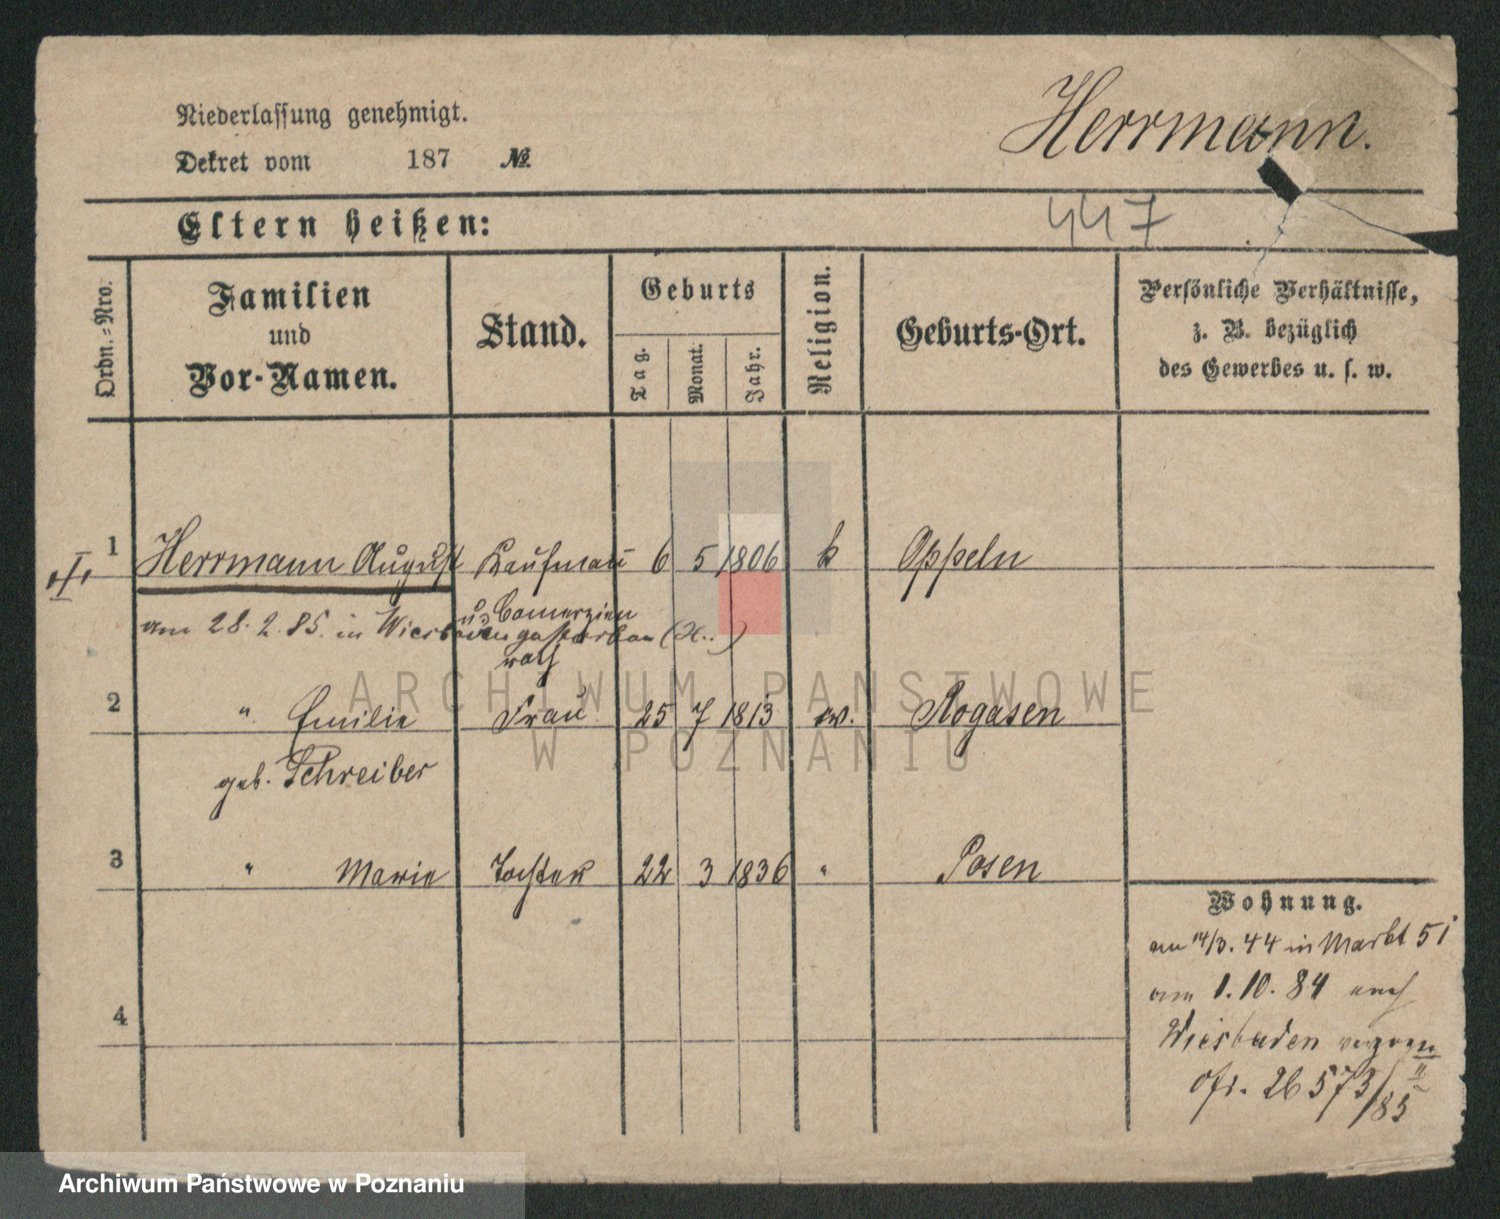 Herrmann.
Niederlassung genehmigt.
Dekret vom 187 №
447
Eltern heißen:
Ordn.-Nro.
Familien
und
Vor-Namen.
Stand.
Geburts
Tag.
Monat.
Jahr.
Religion.
Geburts-Ort.
Persönliche Verhältnisse,
z. B. bezüglich
des Gewerbes u. s. w.
1 Herrmann August Kaufmann 6 5 1806 k Oppeln
u. Comerzien
rath
am 28.2.85. in Wiesbaden gestorben
2 " Emilie Frau 25 7 1813 ev. Rogasen
geb. Schreiber
3 " Marie Tochter 22 3 1836 " Posen
4
Wohnung.
am 14/3.44 in Markt 51
am 1.10.84 nach
Wiesbaden verzogen
26573/85 II
ARCHIWUM PAŃSTWOWE
W POZNANIU
Archiwum Państwowe w Poznaniu